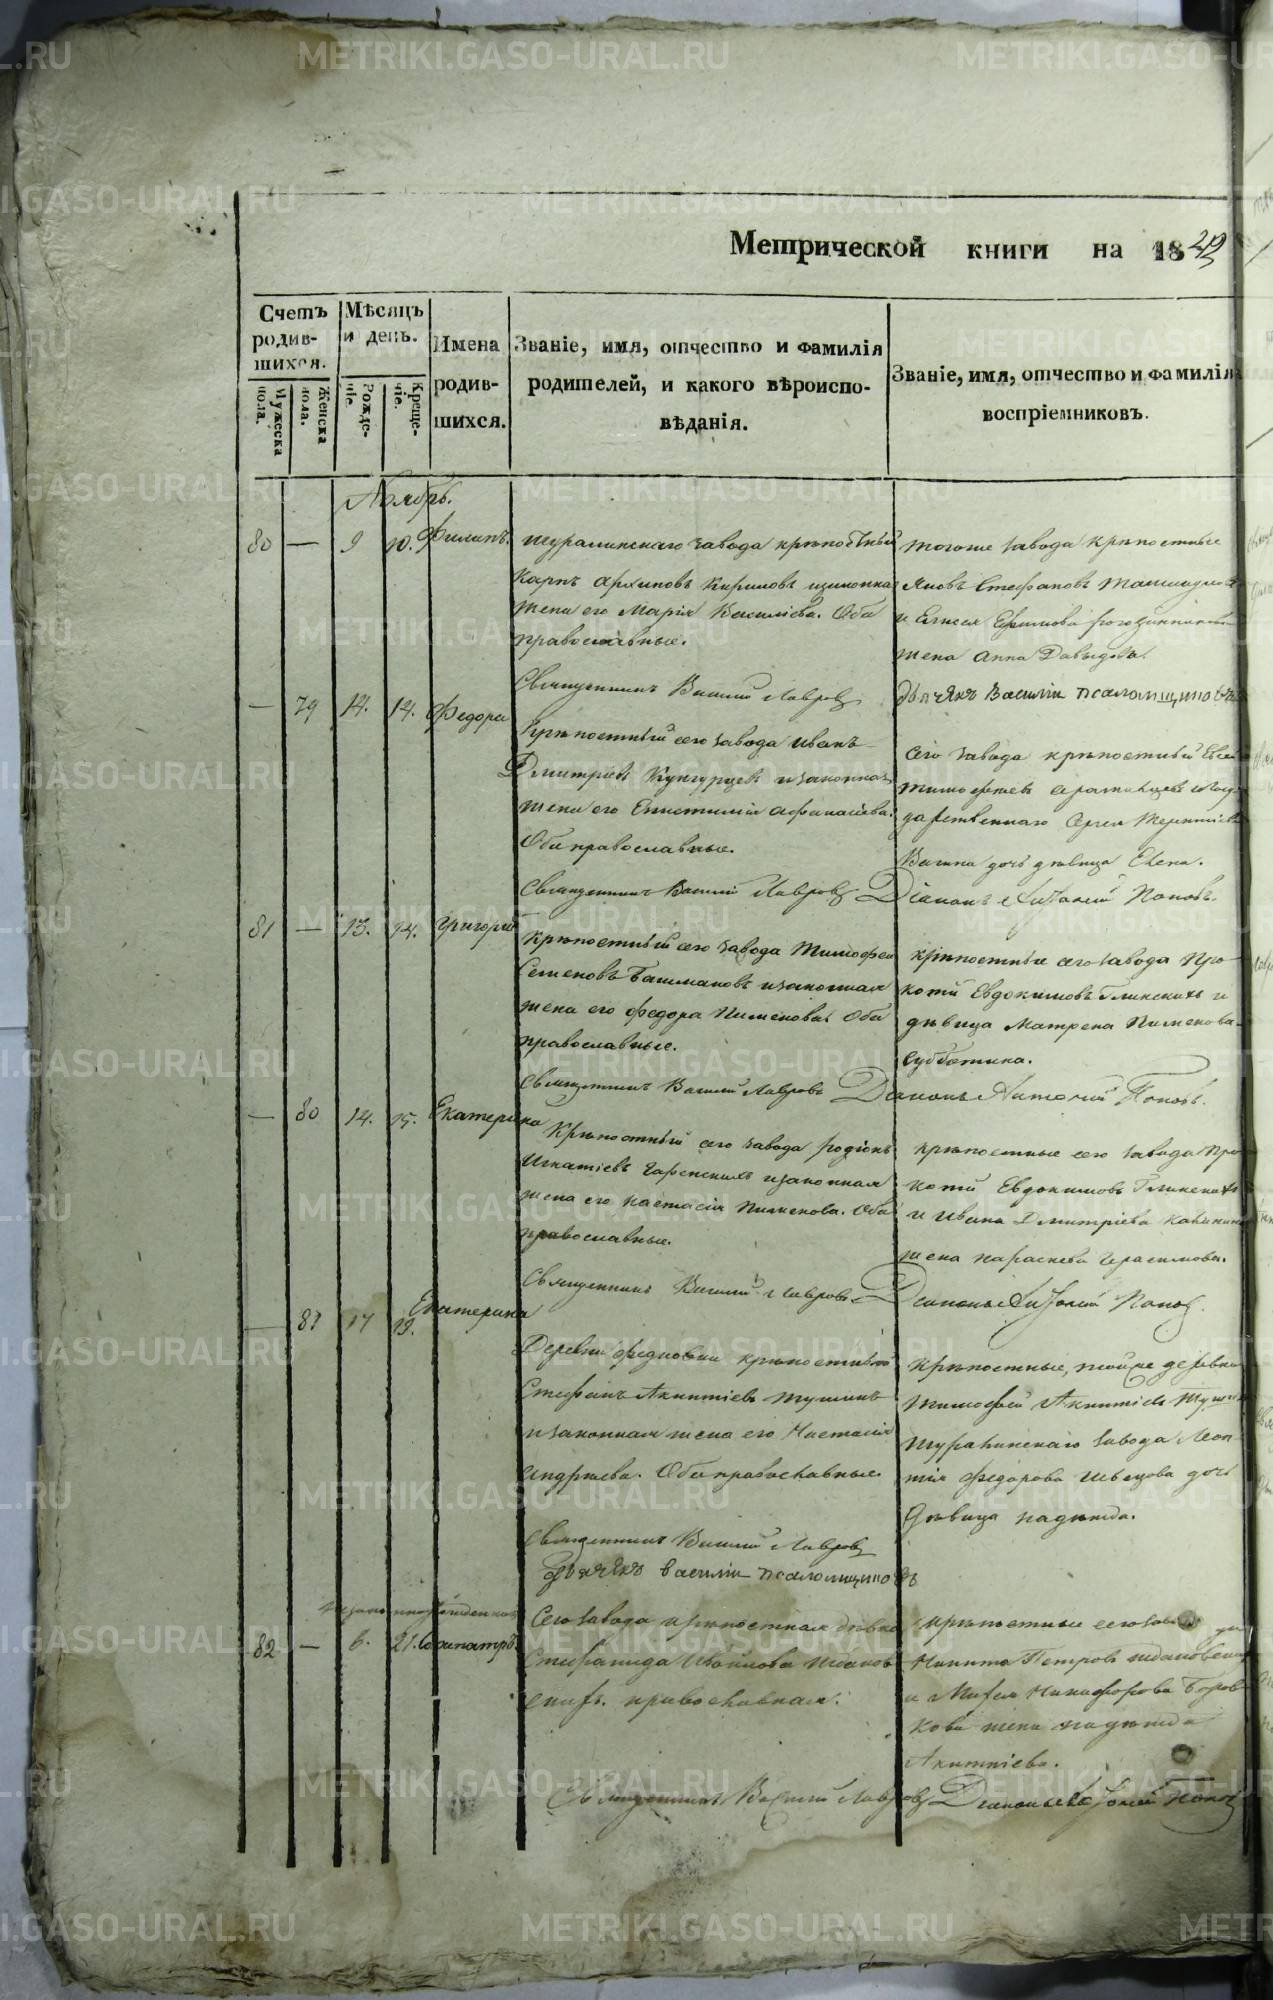 METRIKI.GASO-URAL.RU
Метрической книги на 1843
Счетъ родив-шихся.
Мужеска пола.
Женска пола.
Мѣсяцъ и день.
Рожде-ніе.
Креще-ніе.
Имена родив-шихся.
Званіе, имя, отчество и фамилія
родителей, и какого вѣроиспо-
вѣданія.
Званіе, имя, отчество и фамилія
воспріемниковъ.
Ноябрь.
80 — 9 10. Филипъ.
шуралинскаго завода крѣпостный
Карпъ Архиповъ Кириловъ и законная
жена его Марія Васильева. Оба
православные.
Священникъ Василій Лавровъ
тогоже завода крѣпостные
Яковъ Стефановъ
и Елисея Ефимова
жена Анна Давыдова.
дьячекъ Василіи Псаломщиковъ
— 79 14. 14. Федора
Крѣпостный сего завода Иванъ
Дмитріевъ Кунгурцевъ и законная
жена его Епистимія Афанасіева.
Оба православные.
Священникъ Василій Лавровъ
Сего завода крѣпостный Евсей
Тимофеевъ
Сергея Терентіева
дочь дѣвица Елена.
Діаконъ Анатолій Поповъ.
81 — 13. 14. Григорій
Крѣпостный сего завода Тимофей
Семеновъ Башмаковъ и законная
жена его Федора Пименова. Оба
православные.
Священникъ Василій Лавровъ
крѣпостные сего завода Про-
копій Евдокимовъ Глинскихъ и
дѣвица Матрена Пименова
Субботина.
Діаконъ Анатолій Поповъ.
— 80 14. 15. Екатерина
Крѣпостный сего завода Родіонъ
Игнатіевъ и законная
жена его Настасія Пименова. Оба
православные.
Священникъ Василій Лавровъ
крѣпостные сего завода Про-
копій Евдокимовъ Глинскихъ
и Ивана Дмитріева
жена Параскева Герасимова.
Діаконъ Анатолій Поповъ.
— 81 17 19. Екатерина
Деревни Федьковки крѣпостный
Стефанъ Акинтіевъ
и законная жена его Настасія
Андреева. Оба православные.
Священникъ Василій Лавровъ
дьячекъ Василіи Псаломщиковъ
крѣпостные, тойже деревни
Тимофей Акинтіевъ
Шуралинскаго завода Леон-
тія Федорова Швецова дочь
дѣвица Надежда.
незаконнорожденной
82 — 6. 21. Сосипатръ
Сего завода крѣпостная дѣвка
Стефанида
православная.
Священникъ Василій Лавровъ
крѣпостные сего завода
Никита Петровъ
и Никифорова Боров-
кова жена Надежда
Акинтіева.
Діаконъ Анатолій Поповъ